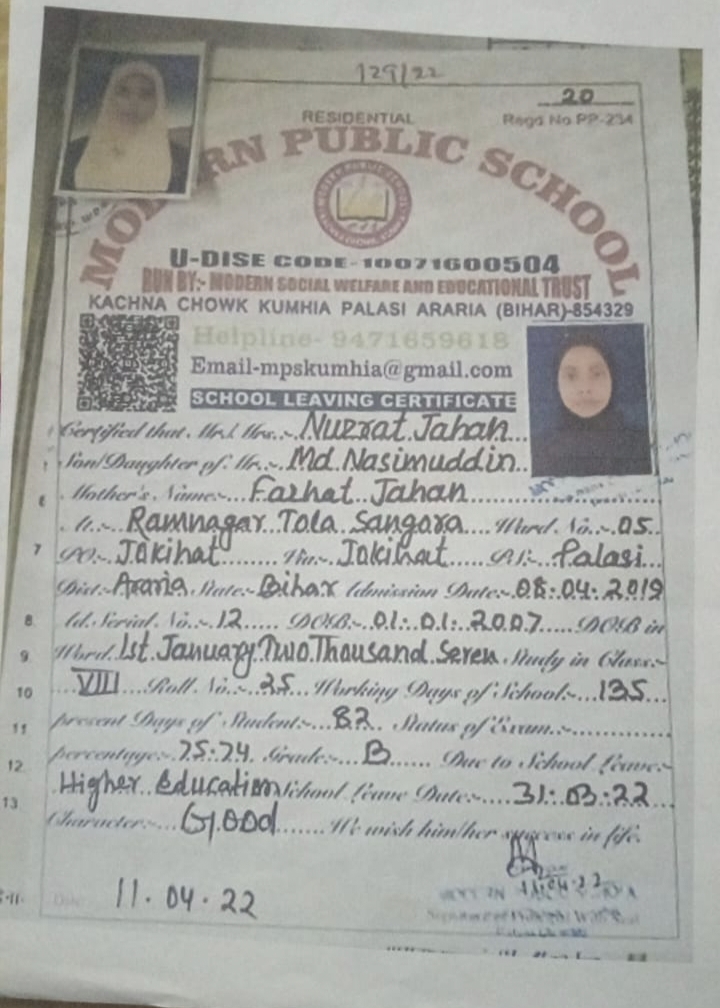 129/22
20
RESIDENTIAL
Regd No PP-234
MODERN PUBLIC SCHOOL
U-DISE CODE-10071600504
RUN BY:- MODERN SOCIAL WELFARE AND EDUCATIONAL TRUST
KACHNA CHOWK KUMHIA PALASI ARARIA (BIHAR)-854329
Helpline- 9471659618
Email-mpskumhia@gmail.com
SCHOOL LEAVING CERTIFICATE
Certified that Mr./ Mrs.:- Nuzrat Jahan
Son/Daughter of Mr.:- Md. Nasimuddin
6 Mother's Name:- Farhat Jahan
At:- Ramnagar Tola Sangora Ward No:- 05
7 PO:- Jokihat Via:- Jokihat P.S:- Palasi
Dist:- Araria State:- Bihar Admission Date:- 08.04.2019
8 Ad. Serial No:- 12 DOB:- 01.01.2007 DOB in
9 Word 1st January Two Thousand Seven Study in Class:-
10 VIII Roll No:- 25 Working Days of School:- 135
11 present Days of Student:- 82 Status of Exam:-
12 percentage:- 75.74 Grade:- B Due to School Leave:-
13 Higher Education School Leave Date:- 31.03.22
Character:- Good We wish him/her success in life.
11.04.22
Date 11.04.22